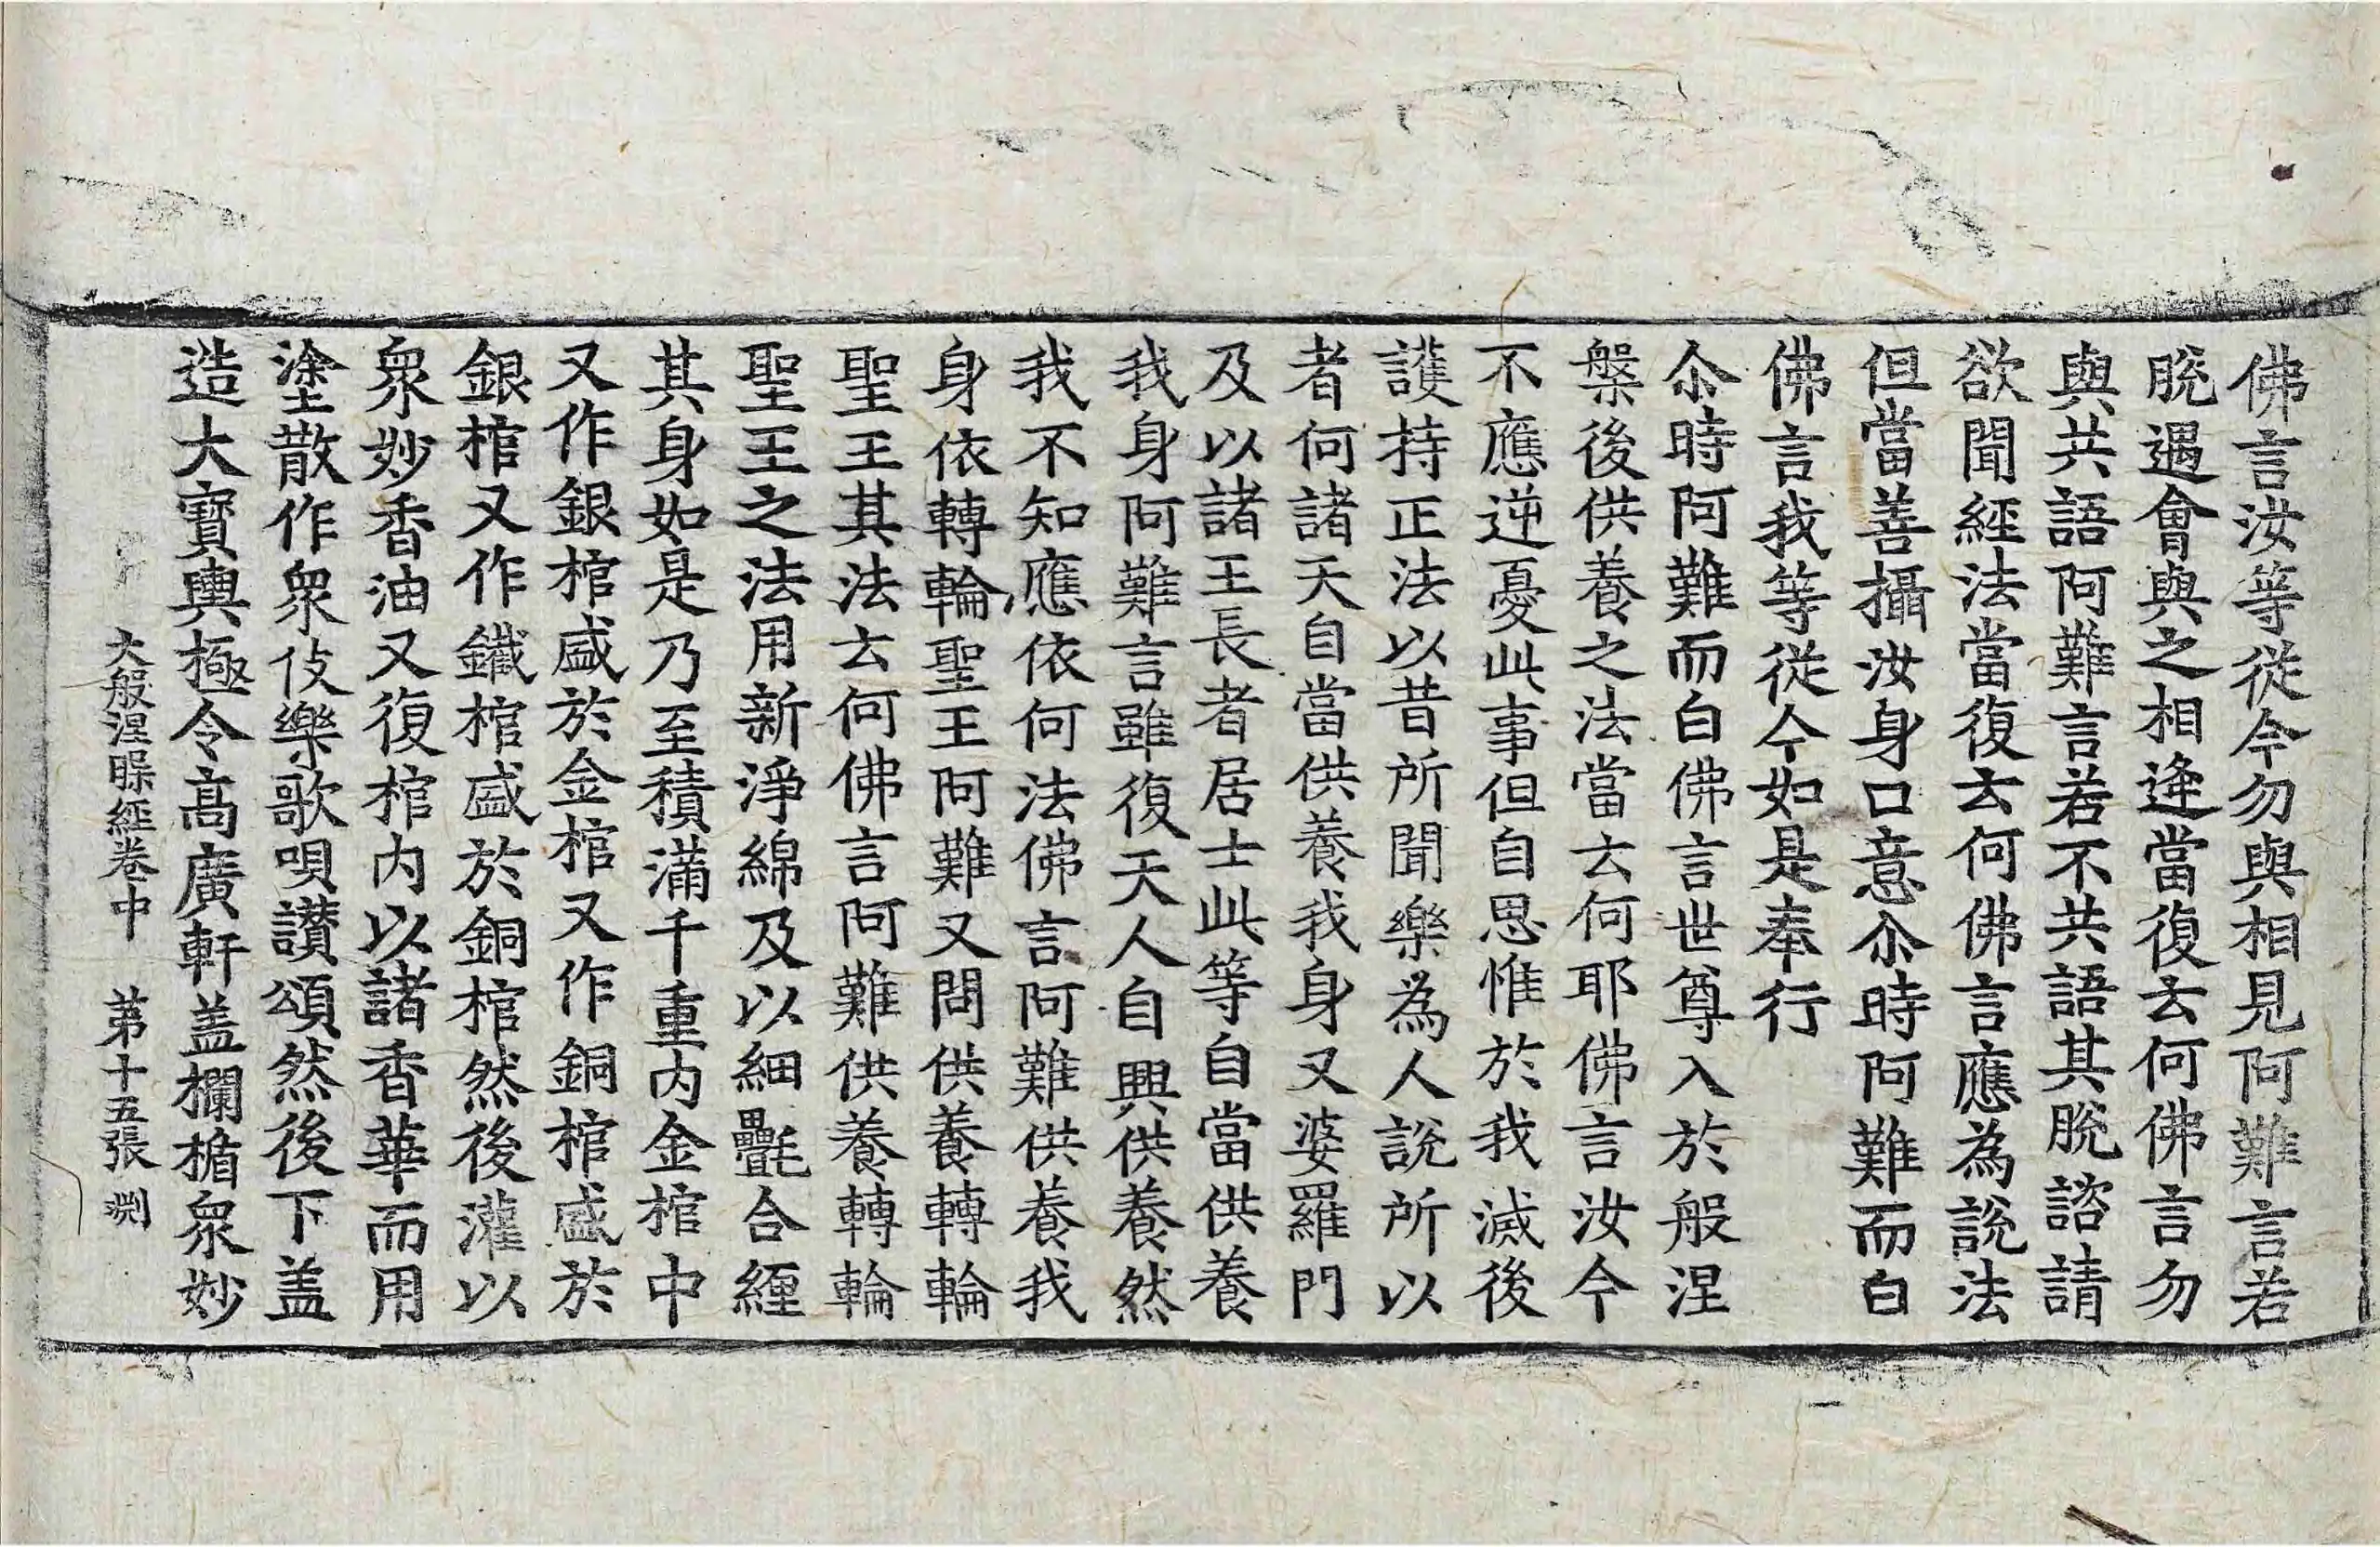 佛言汝等從今勿與相見阿難言若
脫遇會與之相逢當復云何佛言勿
與共語阿難言若不共語其脫諮請
欲聞經法當復云何佛言應為說法
但當善攝汝身口意尒時阿難而白
佛言我等從今如是奉行
尒時阿難而白佛言世尊入於般涅
槃後供養之法當云何耶佛言汝今
不應逆憂此事但自思惟於我滅後
護持正法以昔所聞樂為人說所以
者何諸天自當供養我身又婆羅門
及以諸王長者居士此等自當供養
我身阿難言雖復天人自興供養然
我不知應依何法佛言阿難供養我
身依轉輪聖王阿難又問供養轉輪
聖王其法云何佛言阿難供養轉輪
聖王之法用新淨綿及以細㲲合纏
其身如是乃至積滿千重內金棺中
又作銀棺盛於金棺又作銅棺盛於
銀棺又作鐵棺盛於銅棺然後灌以
衆妙香油又復棺內以諸香華而用
塗散作衆伎樂歌唄讃頌然後下盖
造大寶輿極令高廣軒盖欄楯衆妙
大般涅槃經卷中 第十五張 渕